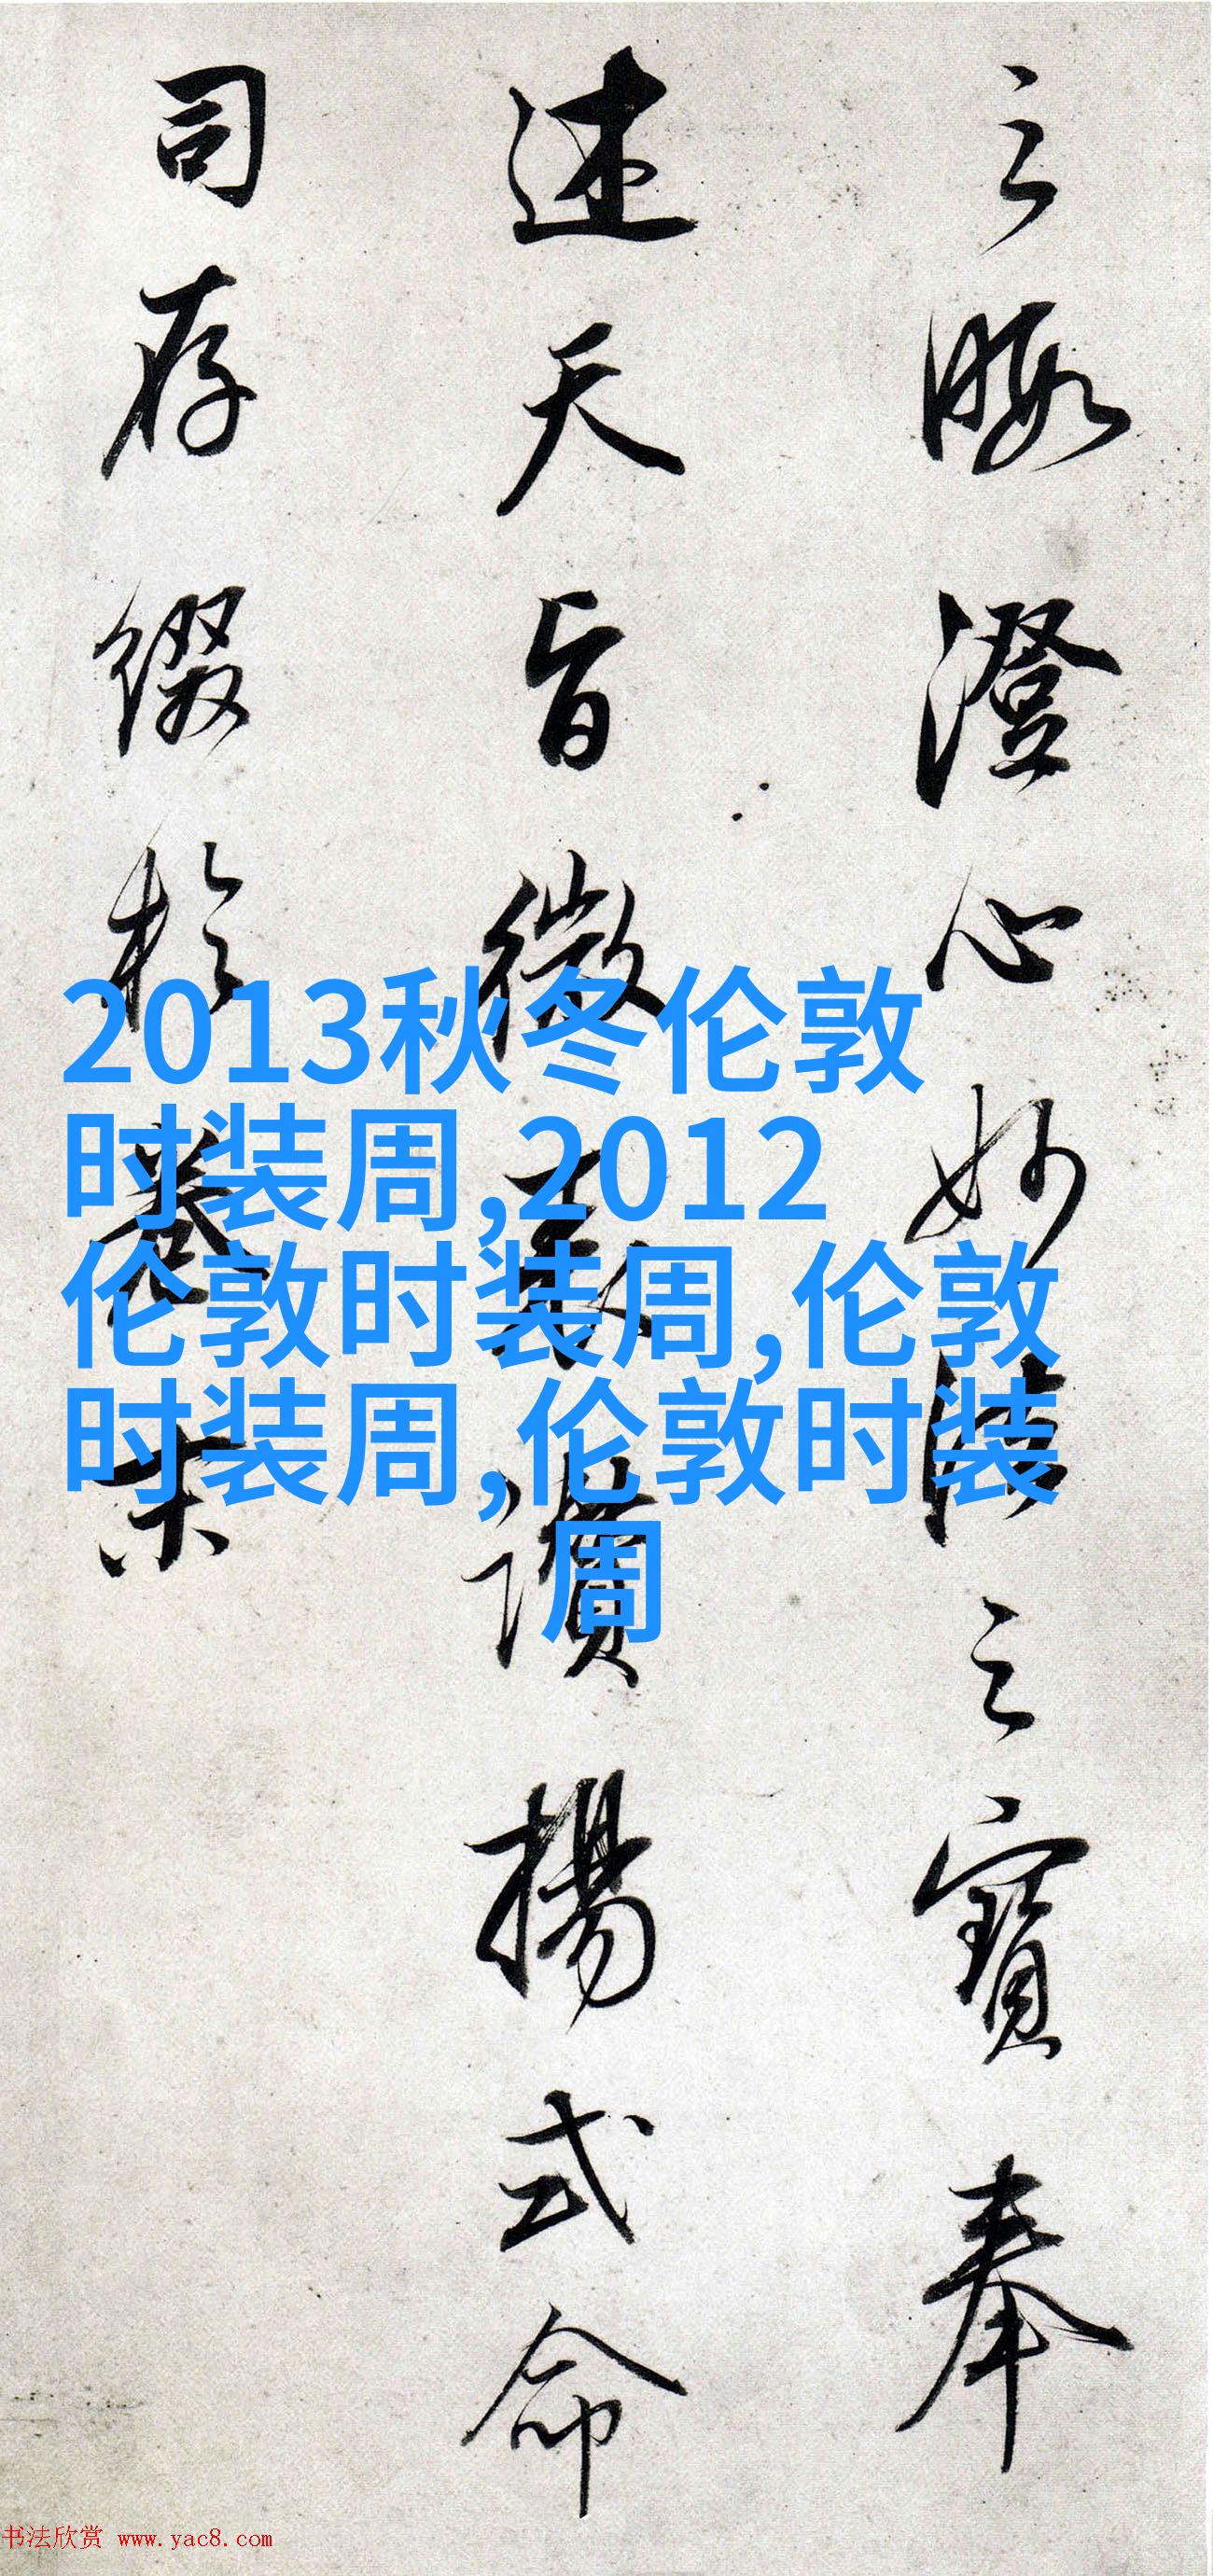 之暇澄心妙法之寶奉
述天旨微表讚揚式命
司存綴於卷末
2013秋冬伦敦
时装周,2012
伦敦时装周,伦敦
时装周,伦敦时装
周
书法欣赏 www.yac8.com